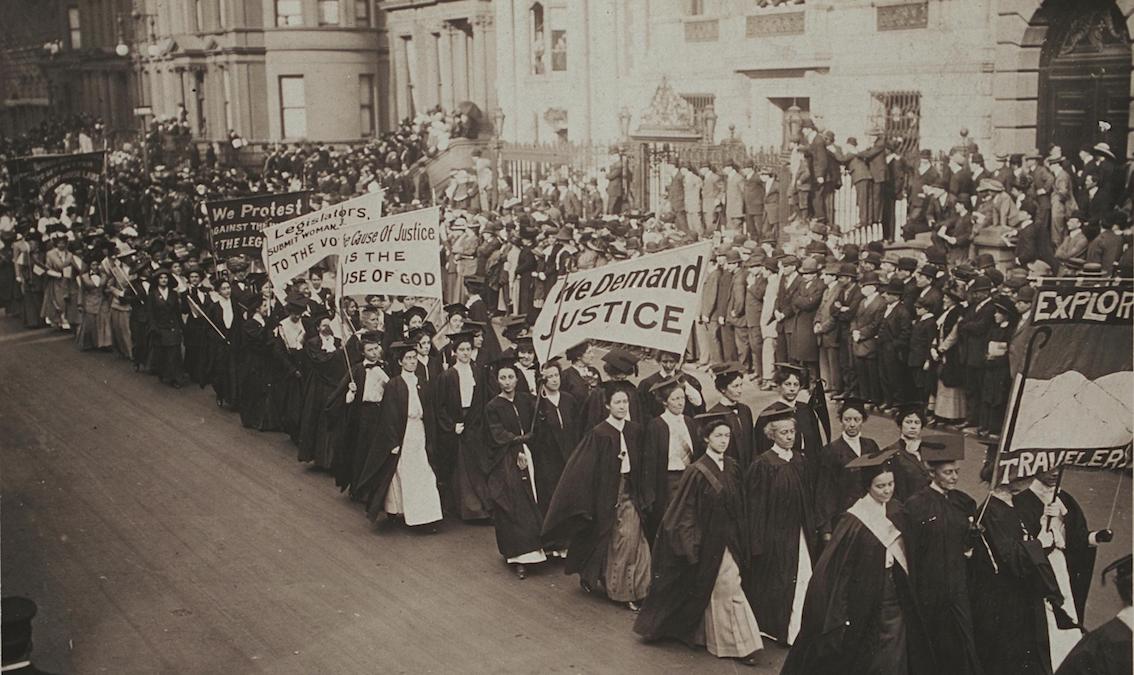 We Protest
AGAINST THE
THE LEG
Legislators,
SUBMIT WOMAN
TO THE VO
e Cause Of Justice
IS THE
USE OF GOD
We Demand
JUSTICE
EXPLOR
TRAVELERS